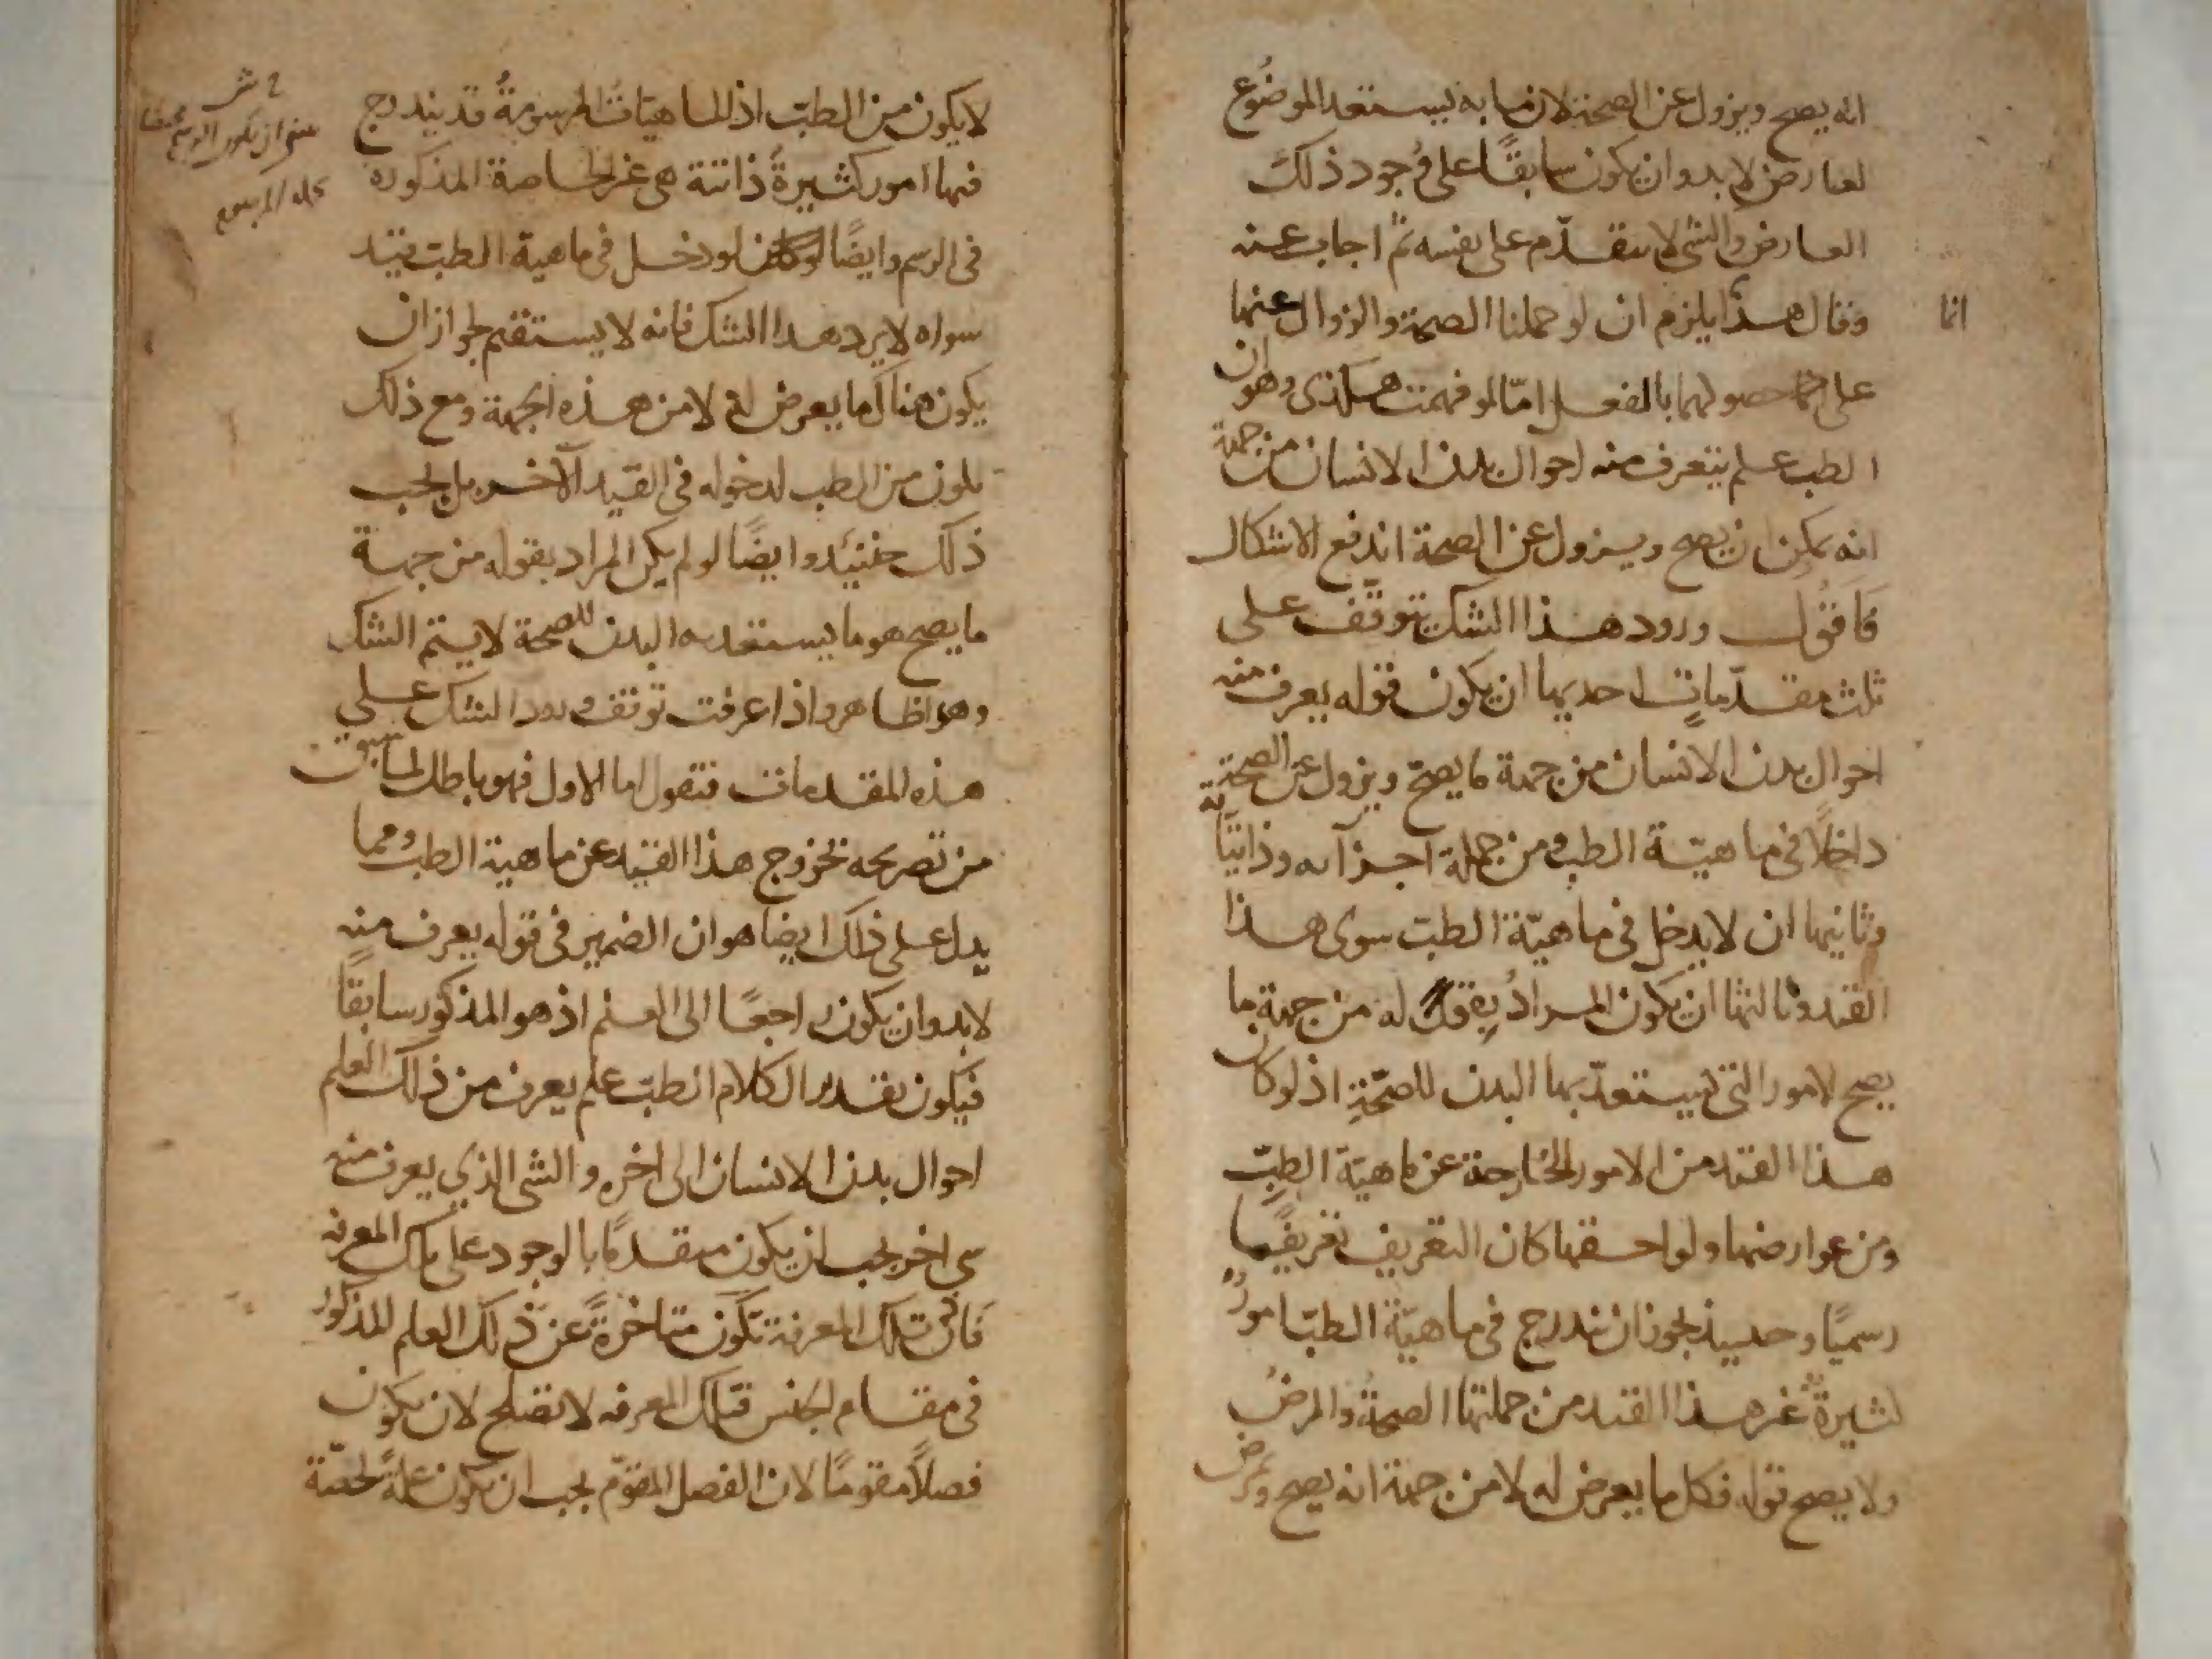 انه يصح ويزول عن الصحة لان ما به يستعد الموضوع
لعارض لابد وان يكون سابقًا على وجود ذلك
العارض والشي لا يتقدّم على نفسه ثم اجاب عنه
وقال هذا يلزم ان لو حملنا الصحة والزوال عنها
انما
على حصولهما بالفعل امّا لو فهمت هكذى وهو ان
الطب علم يتعرف منه احوال بدن الانسان من جهة
انه يمكن ان يصح ويزول عن الصحة اندفع الاشكال
فَاَقُول ورود هذا الشك يتوقّف على
ثلث مقدّماتٍ احديها ان يكون قوله يعرف منه
احوال بدن الانسان من جهة ما يصحّ ويزول عن الصحة
داخلًا في ماهيّة الطب ومن جملة اجزآيه وذاتيّاته
وثانيها ان لا يدخل في ماهيّة الطبّ سوى هذا
القيد وثالثها ان يكون المراد بقوله من جهة ما
يصح الامور التي يستعدّ بها البدن للصحّةِ اذ لو كان
هذا القيد من الامور الخارجة عن ماهيّة الطبّ
ومن عوارضها ولواحقها كان التعريف تعريفًا
رسميًا وحينيذ يجوز ان يندرج في ماهيّة الطبّ امورٌ
كثيرةٌ غير هذا القيد من جملتها الصحةُ والمرضُ
ولا يصح قوله فكل ما يعرض له لا من جهة انه يصح ويمرض
لا يكون من الطبّ اذ الماهيّات المرسومةُ قد يندرج
فيها امور كثيرةٌ ذاتية هى غير الخاصة المذكورة
في الرسم وايضًا لو دخل في ماهية الطب قيد
سواه لا يرد هذا الشك فانه لا يستقيم لجواز ان
يكون هناك ما يعرض له لا من هذه الجهة ومع ذلك
يكون من الطب لدخوله في القيد الآخر بل يجب
ذلك حينئيد وايضًا لو لم يكن المراد بقوله من جهة
ما يصح هو ما يستعد به البدن للصحة لا يستتم الشك
وهو ظاهر واذا عرفت توقف ورود الشك على
هذه المقدمات فنقول اما الاول فهو باطل لما سبق
من تصريحه بخروج هذا القيد عن ماهية الطب ومما
يدل على ذلك ايضا هو ان الضمير في قوله يعرف منه
لابد وان يكون راجعًا الى العلم اذ هو المذكور سابقًا
فيكون تقدير الكلام الطبّ علم يعرف من ذلك العلم
احوال بدن الانسان الى اخره والشى الذي يعرف منه
شى اخر يجب ان يكون متقدمًا بالوجود على تلك المعرفه
فاذن تلك المعرفة تكون متاخرةً عن ذلك العلم المذكور
في مقام الجنس فتلك المعرفه لا تصلح لان يكون
فصلًا مقومًا لان الفصل المقوّم يجب ان يكون علةً لحصّة